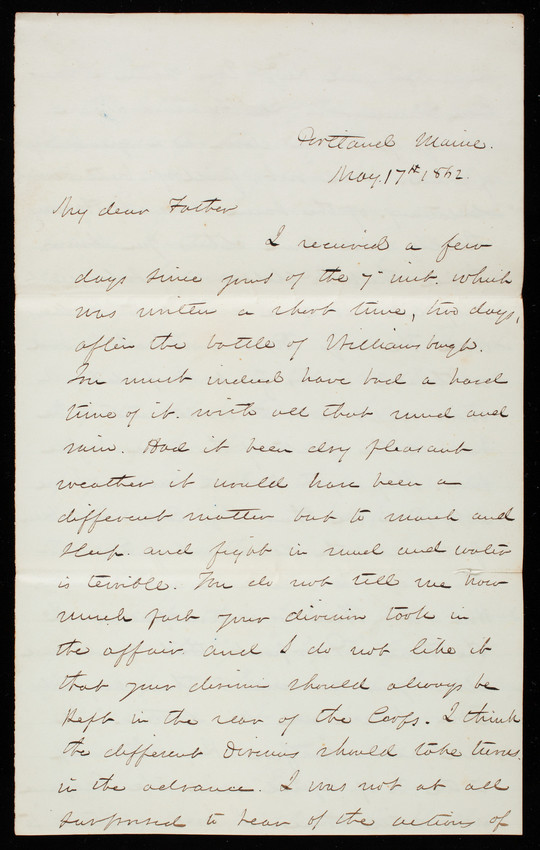 Portland Maine.
May, 17th, 1862.
My dear Father
I received a few
days since yours of the 7th inst. which
was written a short time, two days,
after the battle of Williamsburgh.
You must indeed have had a hard
time of it. with all that mud and
rain. Had it been dry pleasant
weather it would have been a
different matter but to march and
sleep. and fight in mud and water
is terrible. You do not tell me how
much part your division took in
the affair. and I do not like it
that your division should always be
kept in the rear of the Corps. I think
the different Divisions should take turns.
in the advance. I was not at all
surprised to hear of the actions of